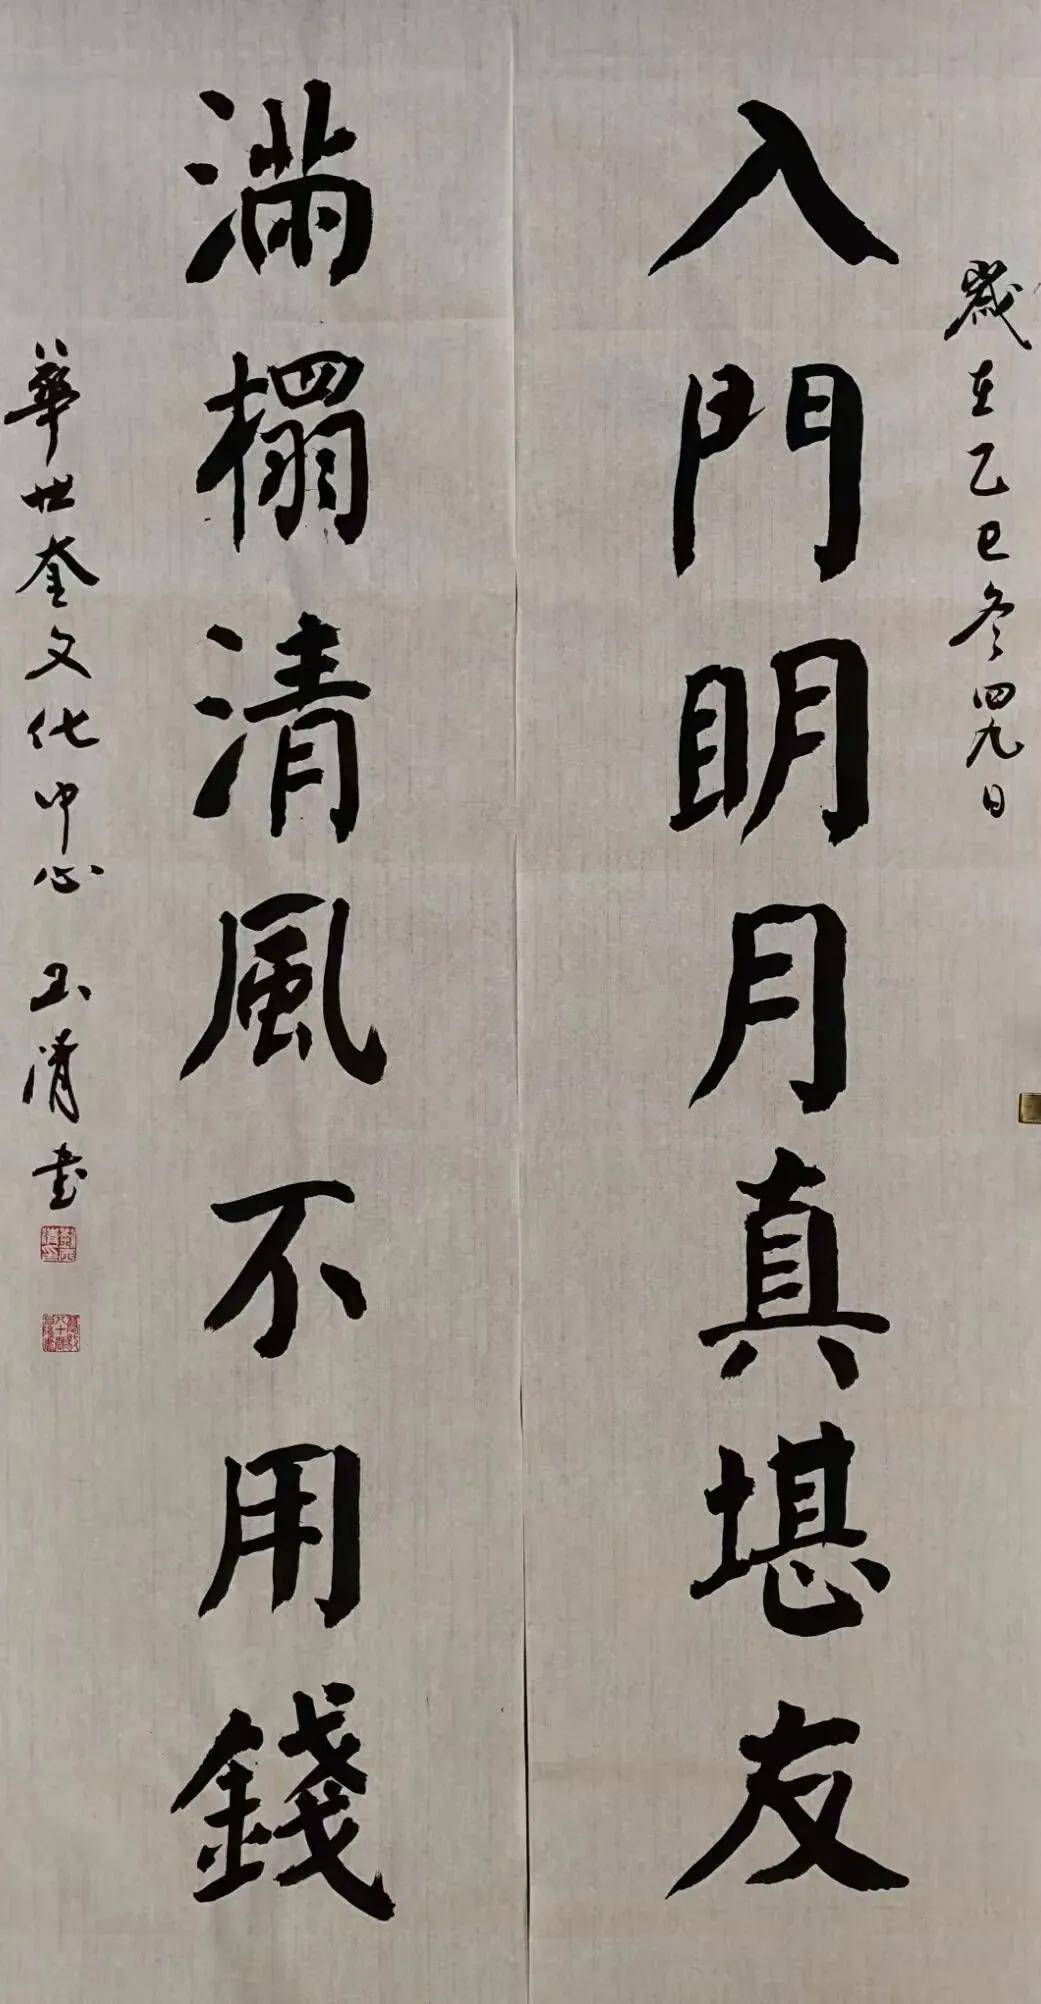 歲在乙巳冬四九日
入門明月真堪友
滿榻清風不用錢
華世奎文化中心 玉清書